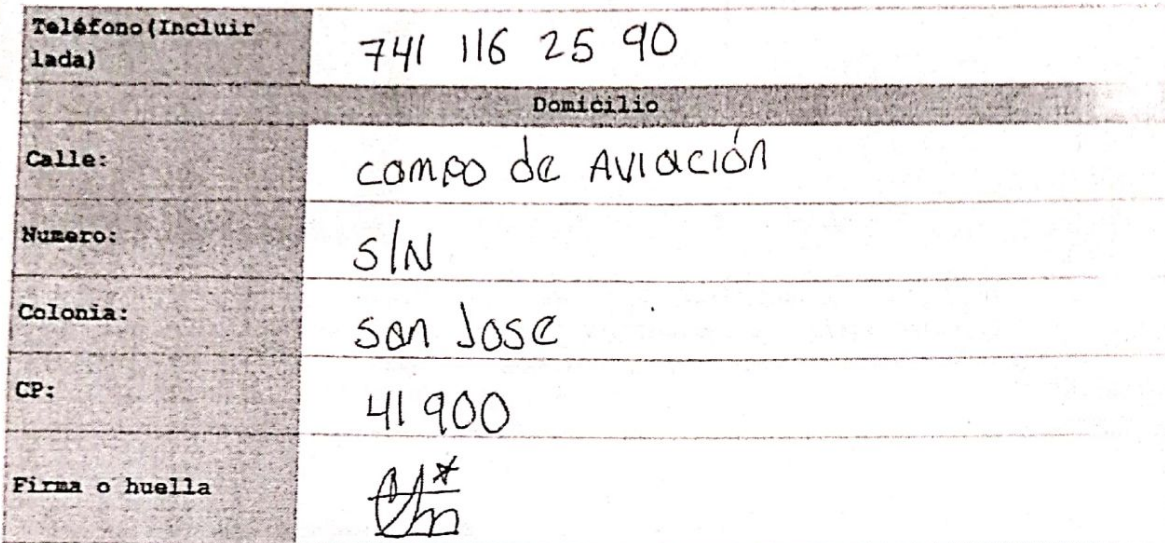 Teléfono(Incluir lada) 741 116 25 90
Domicilio
Calle: campo de Aviación
Numero: S/N
Colonia: san Jose
CP: 41 900
Firma o huella